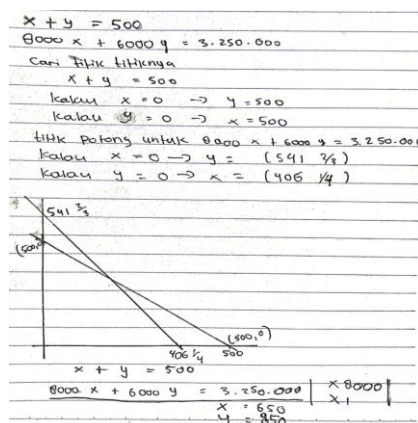 x + y = 500
8000 x + 6000 y = 3.250.000
Cari titik titiknya
x + y = 500
kalau x = 0 → y = 500
kalau y = 0 → x = 500
titik potong untuk 8000 x + 6000 y = 3.250.000
kalau x = 0 → y = (541 2/3)
kalau y = 0 → x = (406 1/4)
541 2/3
(500,0)
(500,0)
406 1/4 500
x + y = 500 | x 8000 |
8000 x + 6000 y = 3.250.000 | x 1
x = 650
y = 850